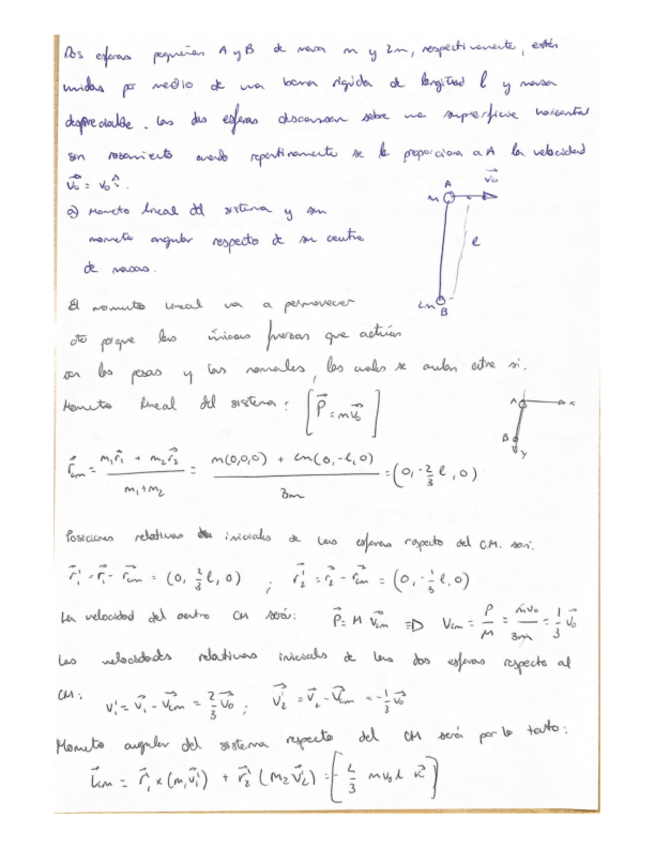 Dos esferas pequeñas A y B de masa m y 2m, respectivamente, están
unidas por medio de una barra rígida de longitud l y masa
despreciable. Las dos esferas descansan sobre una superficie horizontal
sin rozamiento cuando repentinamente se le proporciona a A la velocidad
v₀ = v₀ î.
V₀
A
m
l
2m
B
a) Momento lineal del sistema y su
momento angular respecto de su centro
de masas.
El momento lineal va a permanecer
cte porque las únicas fuerzas que actúan
son los pesos y las normales, las cuales se anulan entre si.
Momento lineal del sistema: [P⃗ = m v⃗₀]
A x
B
y
r⃗cm = (m₁r⃗₁ + m₂r⃗₂)/(m₁+m₂) = (m(0,0,0) + 2m(0,-l,0))/3m = (0, -2/3 l, 0)
Posiciones relativas iniciales de las esferas respecto del C.M. son:
r⃗₁' = r⃗₁ - r⃗cm = (0, 2/3 l, 0) ; r⃗₂' = r⃗₂ - r⃗cm = (0, -1/3 l, 0)
La velocidad del centro CM será: P⃗ = M v⃗cm ⇒ Vcm = P/M = mv₀/3m = 1/3 v⃗₀
Las velocidades relativas iniciales de las dos esferas respecto al
CM: v₁' = v⃗₁ - v⃗cm = 2/3 v⃗₀ ; v⃗₂' = v⃗₂ - v⃗cm = -1/3 v⃗₀
Momento angular del sistema respecto del CM será por lo tanto:
L⃗cm = r⃗₁' × (m₁v⃗₁') + r⃗₂' (m₂v⃗₂') = [-2/3 mv₀ l k⃗]